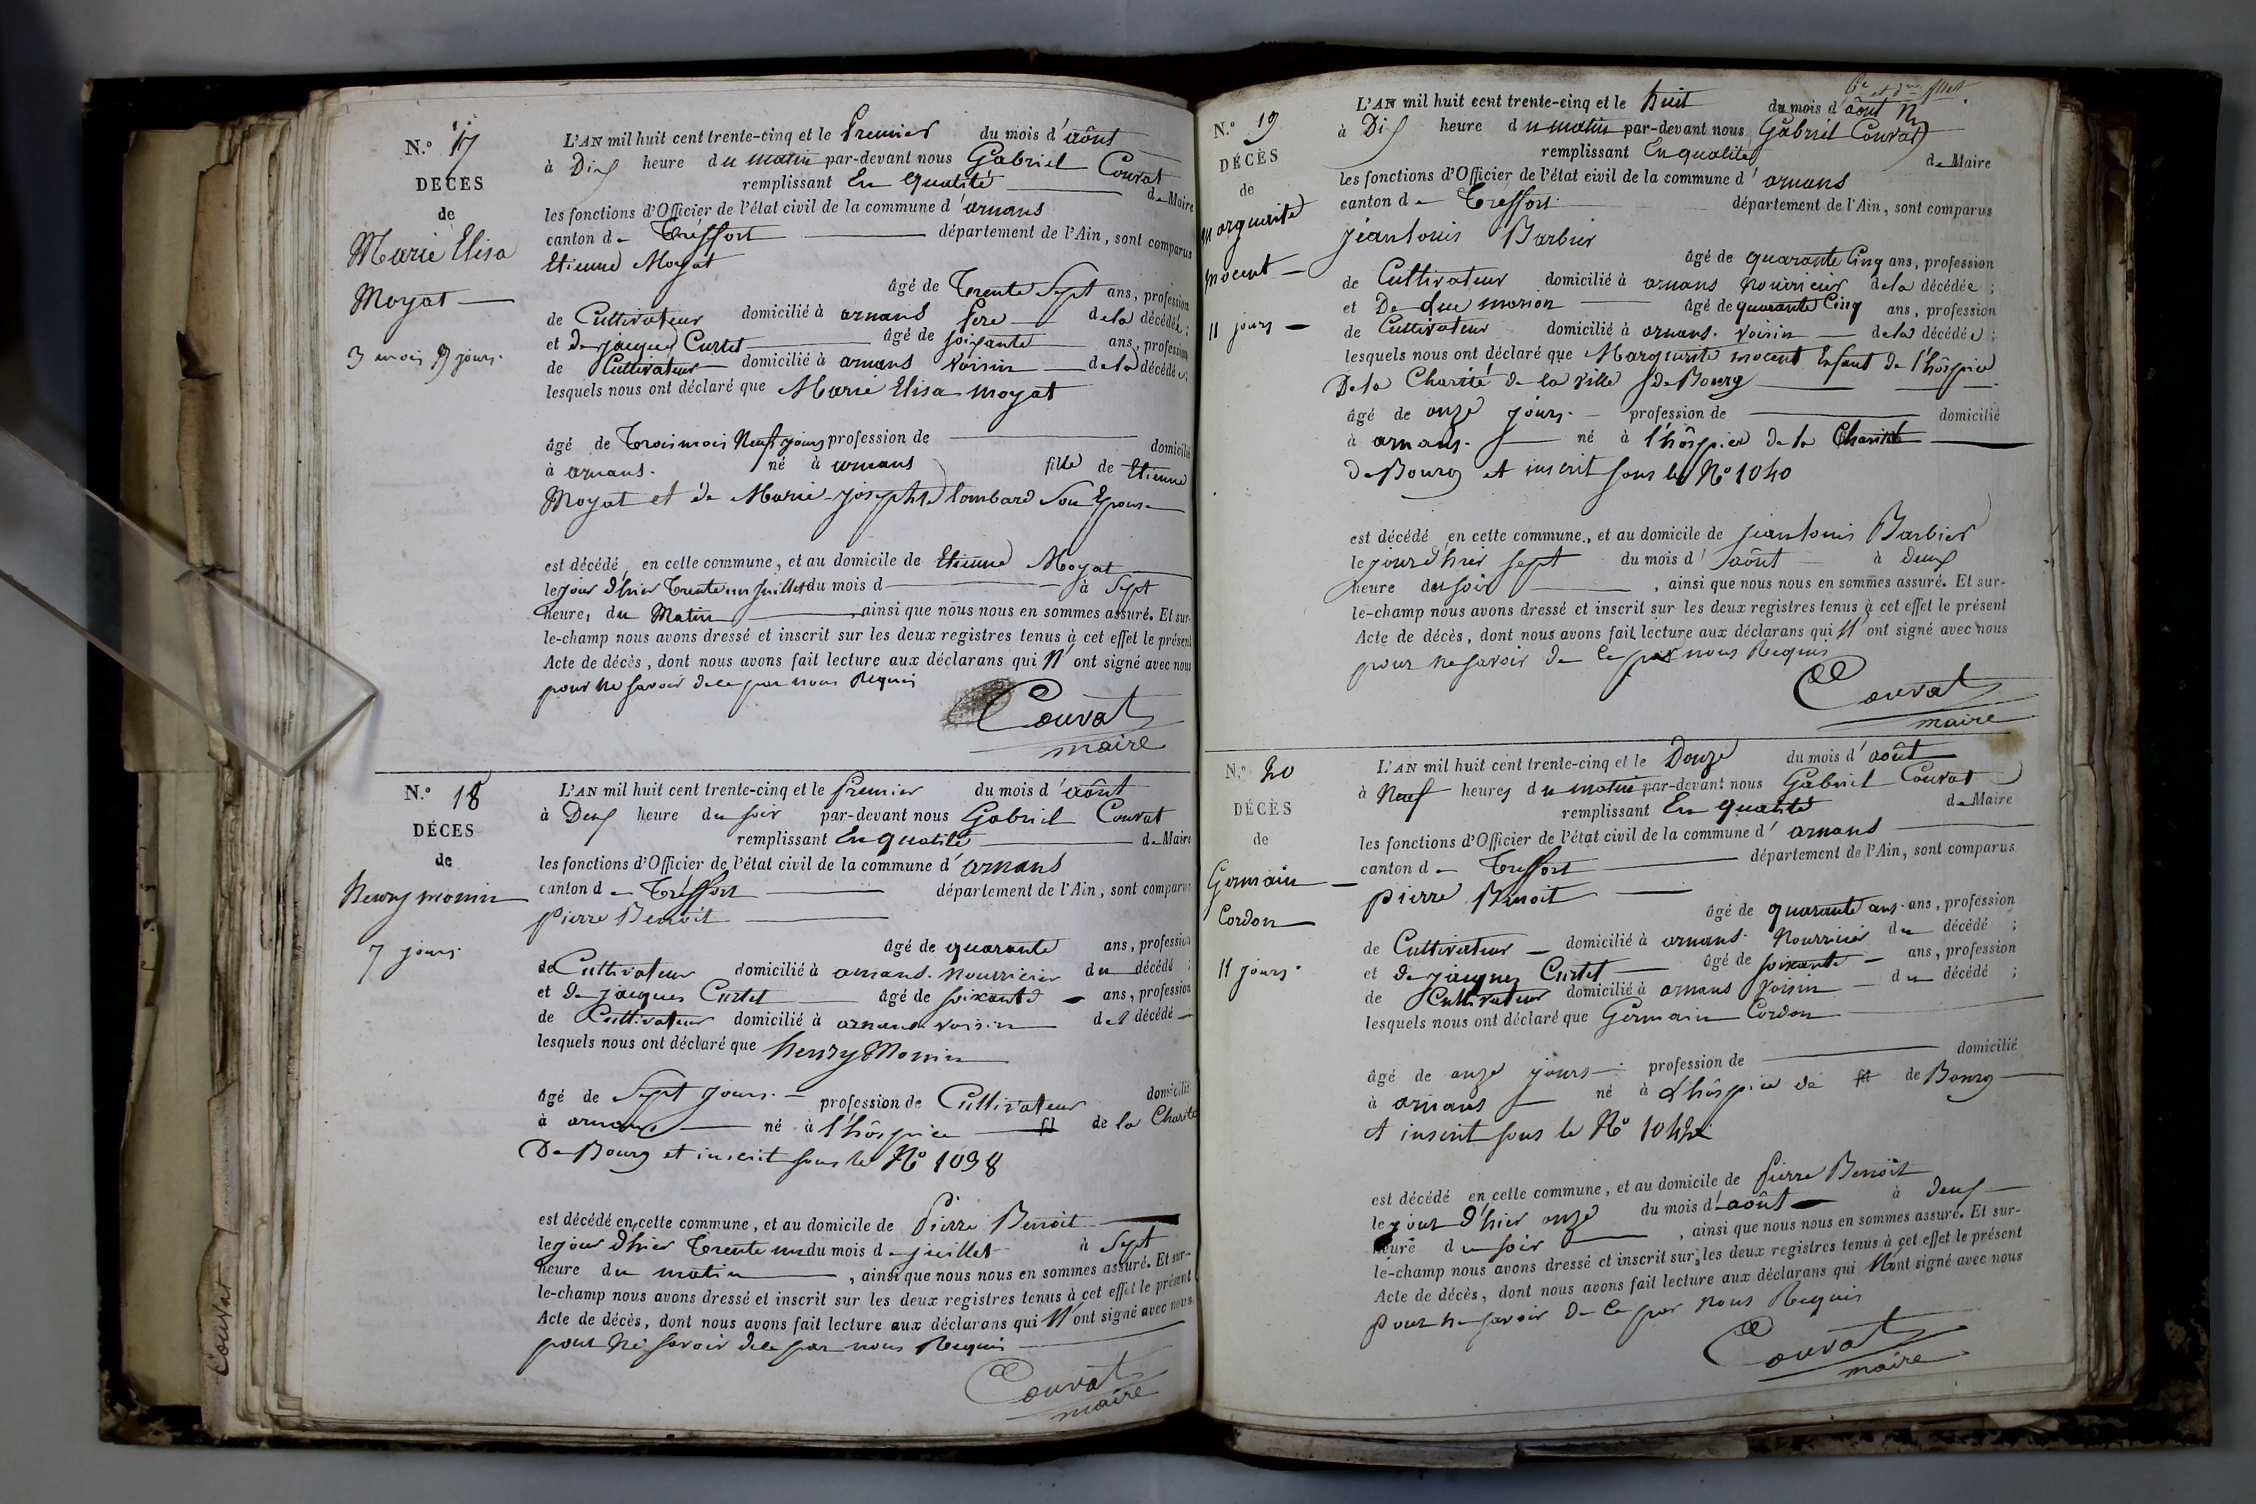 N.° 17
DÉCÈS
de
Marie Elisa
Moyat
3 mois 9 jours
L'AN mil huit cent trente-cinq et le Premier du mois d'aôut
à Dix heure du matin par-devant nous Gabriel Couvat
remplissant En qualité de Maire
les fonctions d'Officier de l'état civil de la commune d'arnans
canton de Treffort département de l'Ain, sont comparus
Etienne Moyat
âgé de Trente Sept ans, profession
de Cultivateur domicilié à arnans père de la décédée ;
et de jacques Curtet âgé de soixante ans, profession
de Cultivateur domicilié à arnans voisin de la décédée ;
lesquels nous ont déclaré que Marie Elisa moyat
âgé de Trois mois Neuf jours profession de domicilié
à arnans. né à arnans fille de Etienne
Moyat et de Marie josephte lombard Son Epouse
est décédé en cette commune, et au domicile de Etienne Moyat
le jour d'hier Trente un juillet du mois d à Sept
heure, du Matin ainsi que nous nous en sommes assuré. Et sur-
le-champ nous avons dressé et inscrit sur les deux registres tenus à cet effet le présent
Acte de décès, dont nous avons fait lecture aux déclarans qui N'ont signé avec nous
pour ne savoir de ce par nous Requis
Couvat
maire
N.° 18
DÉCES
de
henry monin
7 jours
L'AN mil huit cent trente-cinq et le premier du mois d'aôut
à Deux heure du soir par-devant nous Gabriel Couvat
remplissant En qualité de Maire
les fonctions d'Officier de l'état civil de la commune d'arnans
canton de Treffort département de l'Ain, sont comparus
pierre Benoit
âgé de quarante ans, profession
de Cultivateur domicilié à arnans. nourricier du décédé ;
et de jacques Curtet âgé de soixante ans, profession
de Cultivateur domicilié à arnans voisin de décédé
lesquels nous ont déclaré que henry Monin
âgé de Sept jours. profession de Cultivateur domicilié
à arnans né à l'hôspice fil de la Charité
De Bourg et inscrit sous le N° 1038
est décédé en cette commune, et au domicile de Pierre Benoit
le jour d'hier Trente un du mois de juillet à Sept
heure du matin, ainsi que nous nous en sommes assuré. Et sur-
le-champ nous avons dressé et inscrit sur les deux registres tenus à cet effet le présent
Acte de décès, dont nous avons fait lecture aux déclarans qui N'ont signé avec nous
pour ne savoir de ce par nous Requis
Couvat
maire
Couvat
N.° 19
DÉCÈS
de
marguerite
mocent
11 jours
L'AN mil huit cent trente-cinq et le huit du mois d'aôut
à Dix heure du matin par-devant nous Gabriel Couvat
remplissant En qualité de Maire
les fonctions d'Officier de l'état civil de la commune d'arnans
canton de Treffort département de l'Ain, sont comparus
jeanlouis Barbier
âgé de quarante Cinq ans, profession
de Cultivateur domicilié à arnans nourricier de la décédée ;
et De luc monon âgé de quarante Cinq ans, profession
de Cultivateur domicilié à arnans. voisin de la décédée ;
lesquels nous ont déclaré que Marguerite mocent Enfant de l'hôspice
De la Charité de la ville de Bourg
âgé de onze jours. profession de domicilié
à arnans. né à l'hôspice de la Charité
de Bourg et inscrit sous le N° 1040
est décédé en cette commune, et au domicile de jeanlouis Barbier
le jour d'hier sept du mois d'aôut à deux
heure du soir, ainsi que nous nous en sommes assuré. Et sur-
le-champ nous avons dressé et inscrit sur les deux registres tenus à cet effet le présent
Acte de décès, dont nous avons fait lecture aux déclarans qui N'ont signé avec nous
pour ne savoir de ce par nous Requis
Couvat
maire
N.° 20
DÉCÈS
de
Germain
Cordon
11 jours
L'AN mil huit cent trente-cinq et le Douze du mois d'aôut
à Neuf heures du matin par-devant nous Gabriel Couvat
remplissant En qualité de Maire
les fonctions d'Officier de l'état civil de la commune d'arnans
canton de Treffort département de l'Ain, sont comparus
pierre Benoit
âgé de quarante ans ans, profession
de Cultivateur domicilié à arnans. Nourricier du décédé ;
et de jacques Curtet âgé de soixante ans, profession
de Cultivateur domicilié à arnans voisin du décédé ;
lesquels nous ont déclaré que Germain Cordon
âgé de onze jours profession de domicilié
à arnans né à L'hôspice de fil de Bourg
et inscrit sous le N°
est décédé en cette commune, et au domicile de Pierre Benoit
le jour d'hier onze du mois d'aôut à deux
heure du soir, ainsi que nous nous en sommes assuré. Et sur-
le-champ nous avons dressé et inscrit sur les deux registres tenus à cet effet le présent
Acte de décès, dont nous avons fait lecture aux déclarans qui N'ont signé avec nous
pour ne savoir de ce par nous Requis
Couvat
maire